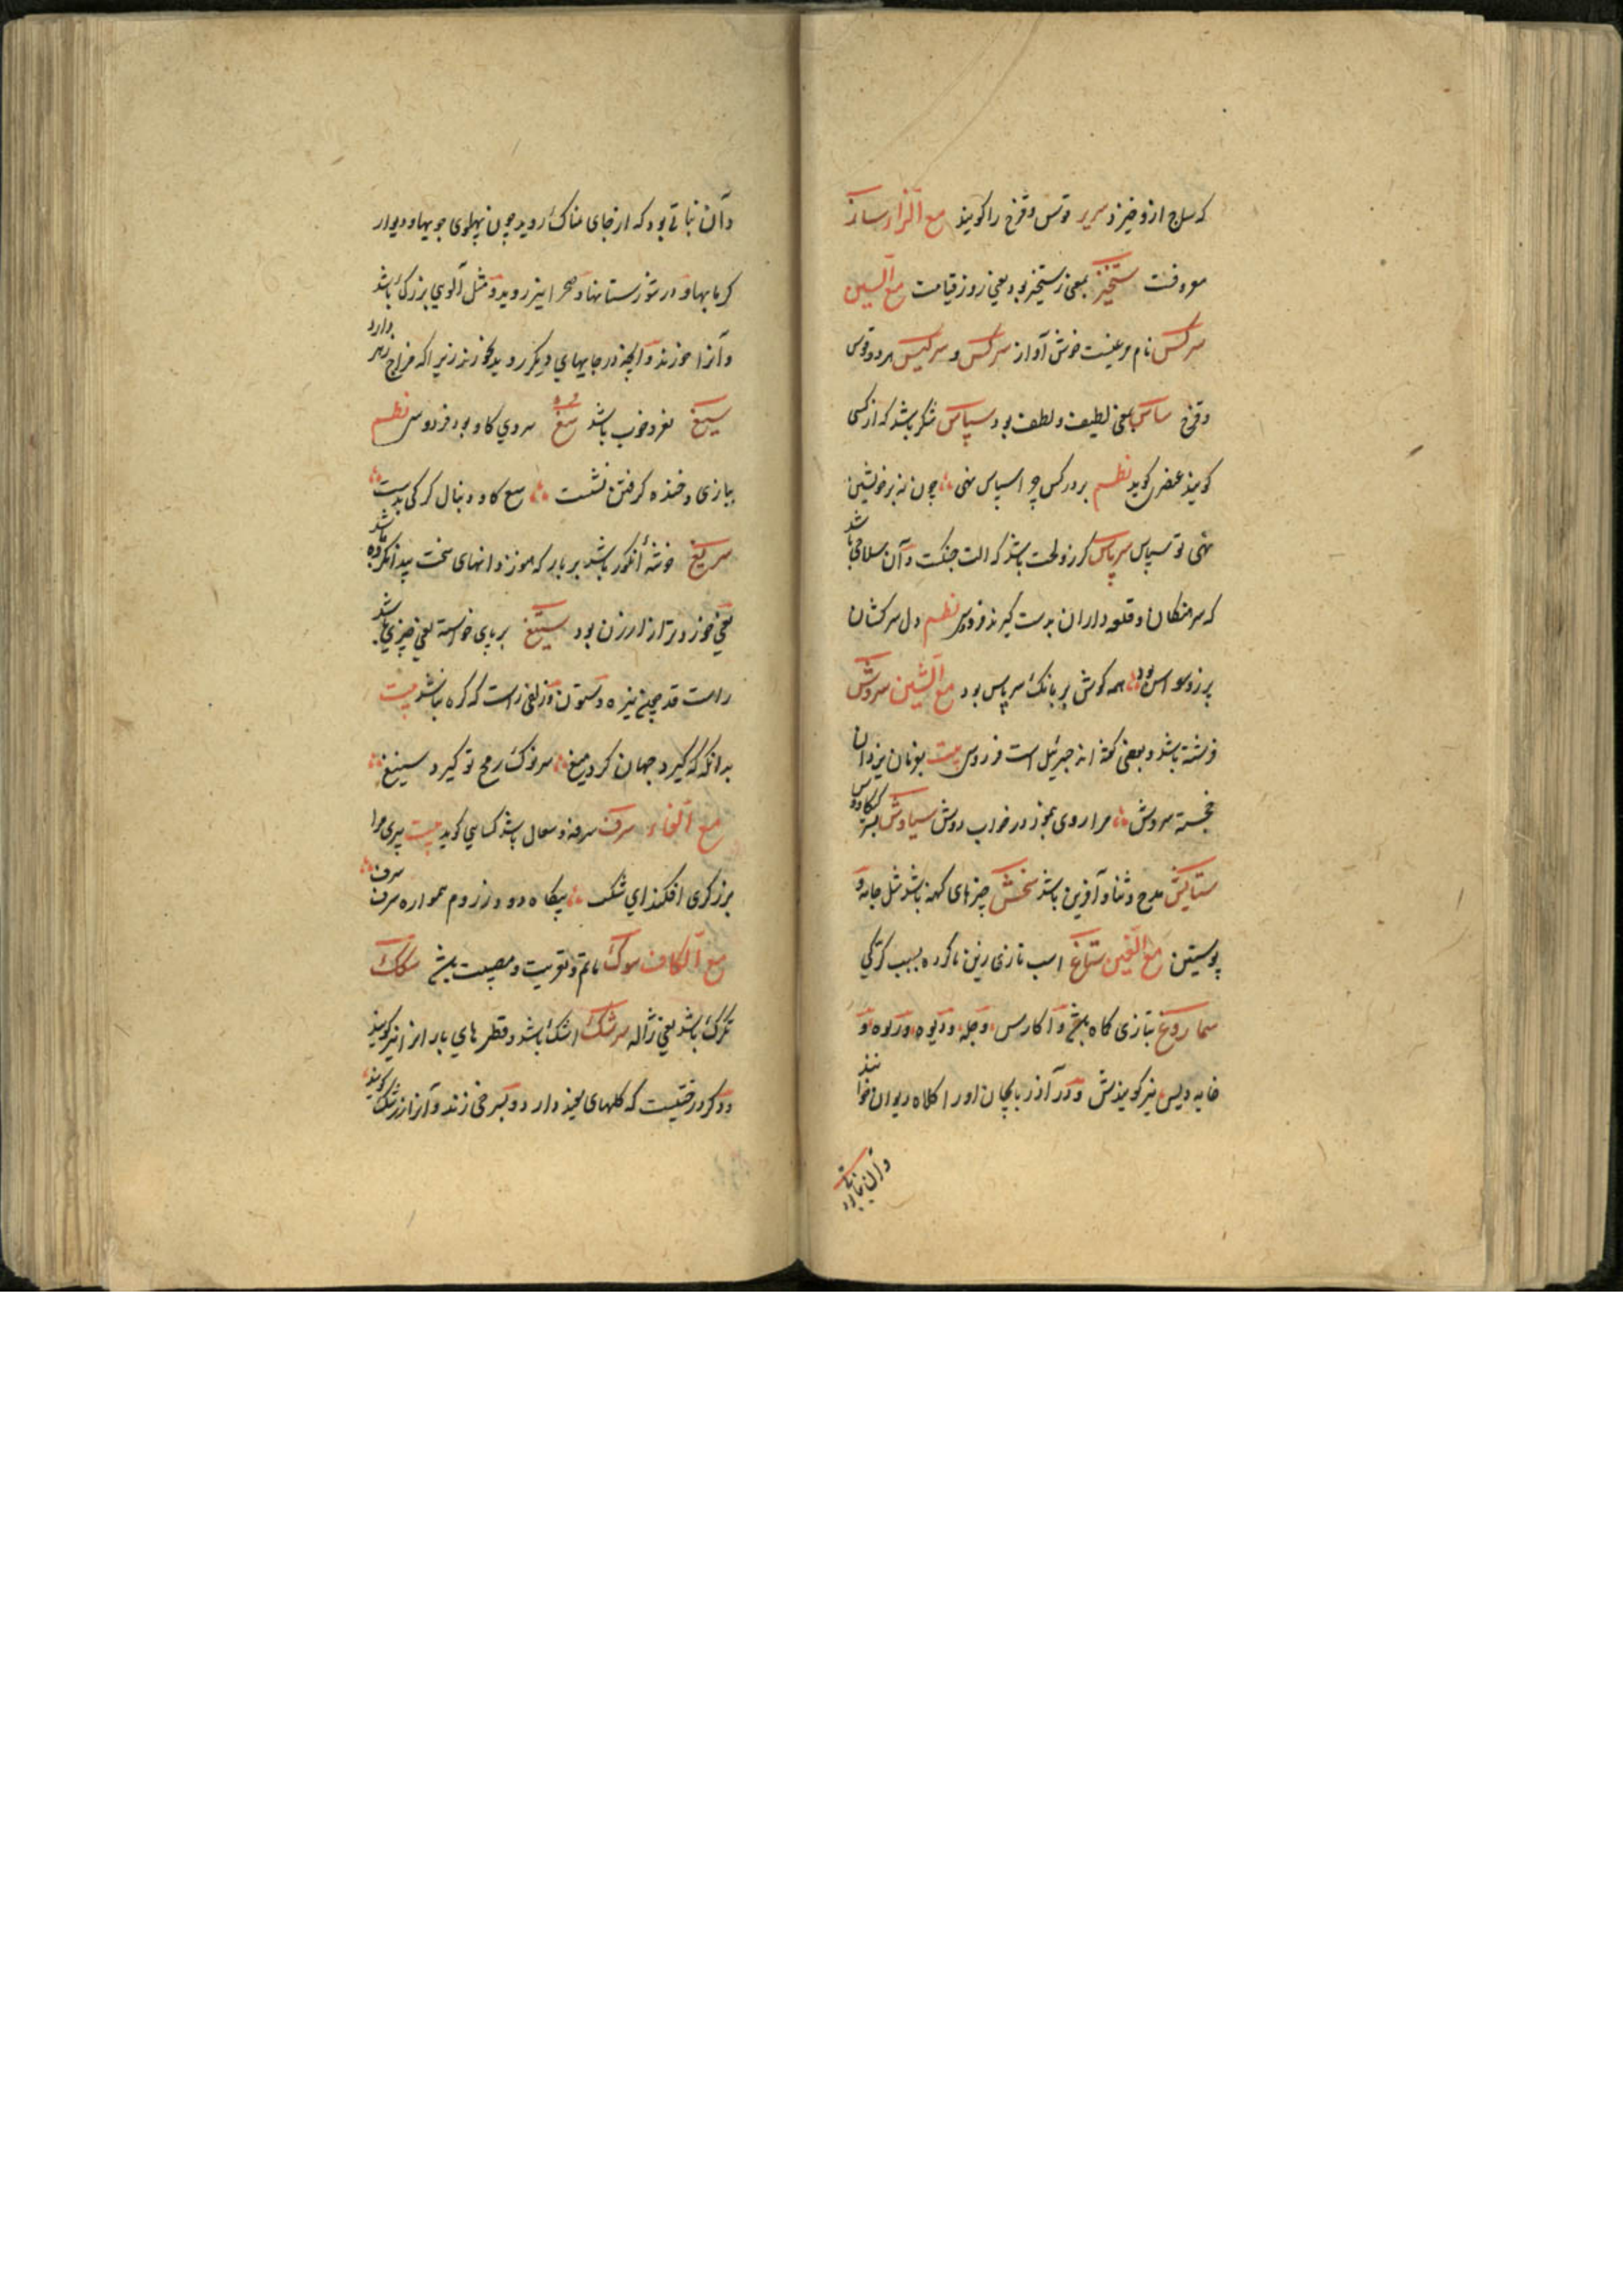 که سلاح ازو خیزد سریر قوس و قزح را گویند مع الزاء ساز
معروفست ستخیز بمعنی رستخیز بود یعنی روز قیامت مع السین
سرکس نام مرغیست خوش آواز سرکس و سرکیس هر دو قوس
و قزح ساس بمعنی لطیف و لطف بود سپاس شکر باشد که از کسی
گویند عنصری گوید نظم بر دگر کس چرا سپاس نهی چون نه بر خویشتن
نهی تو سپاس سرپاس گرز و لخت باشد که الت جنگست و آن سلاحی باشد
که سرهنگان و قلعه داران بدست گیرند فردوسی نظم دل سرکشان
پر ز وسواس بود همه گوش پر بانگ سرپاس بود مع الشین سروش
فرشته باشد و بعضی گفته اند جبرئیل است فردوسی بیت بفرمان یزدان
خجسته سروش مرا روی بنمود در خواب دوش سیاوش پسر کیکاوس
ستایش مدح و ثنا و آفرین باشد سخش چیزهای کهنه باشد مثل جامه و
پوستین مع الغین ستاغ اسب تازی زین ناکرده بسبب کرگی
سماروغ بتازی کماه باشد و اکارس و جله و دیوه و
خایه دیس نیز گویندش و در آذربایجان اورا کلاه دیوان خوانند
و آن نباتی بود
و آن نباتی بود که از جای نمناک روید چون پهلوی جویها و دیوار
گرمابها و در شورستانها و صحرا نیز روید و مثل آلوی بزرگ باشد
و آنرا خورند و آنچه در جایهای دیگر روید نخورند زیرا که مزاج زهر دارد
سیغ نغز و خوب باشد سغ سروی گاو بود فردوسی نظم
ببازی و خنده گرفتن نشست سغ گاو و دنبال گرگی بدست
سریغ خوشهٔ انگور باشد بر بار که هنوز دانهای سخت پیدا نکرده باشد
یعنی خوردتر از ارزن بود ستیغ برپای خواسته یعنی چیزی باشد
راست قد چون نیزه و ستون و زلفی راست که گره نباشد بیت
بدانگه که گیرد جهان گرد میغ سر نوک رمح تو گیرد ستیغ
مع الفاء سرف سرفه و سعال باشد کسایی گوید بیت پیری مرا
بزرگری افکند ای شگفت بیگاه دود زردم همواره سرف سرف
مع الکاف سوک ماتم و تعزیت و مصیبت باشد سنگک
تگرگ باشد یعنی ژاله سرشک اشک باشد و قطرهای باران را نیز گویند
و دگر درختیست که گلهای سفید دارد و بسرخی زند و آنرا زرشک گویند